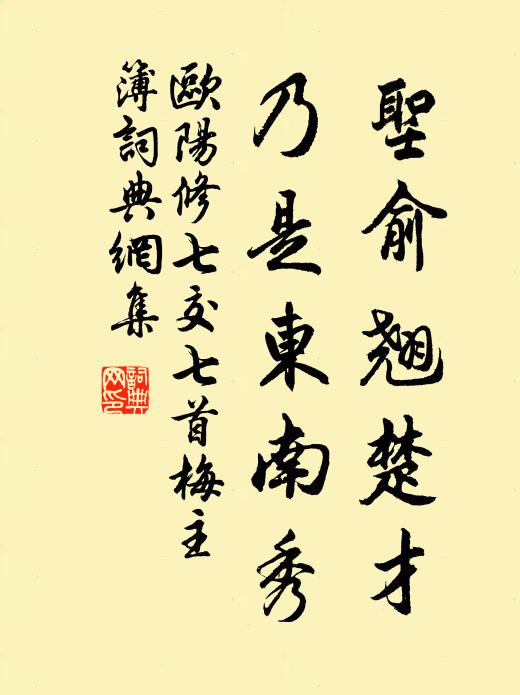 聖俞翹楚才
乃是東南秀
歐陽修七交七首梅主
簿詞典網集
詞典網印